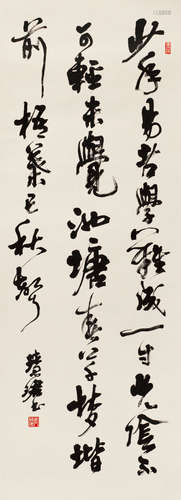 少年易老學難成一寸光陰不
可輕未覺池塘春草夢堦
前梧葉已秋聲